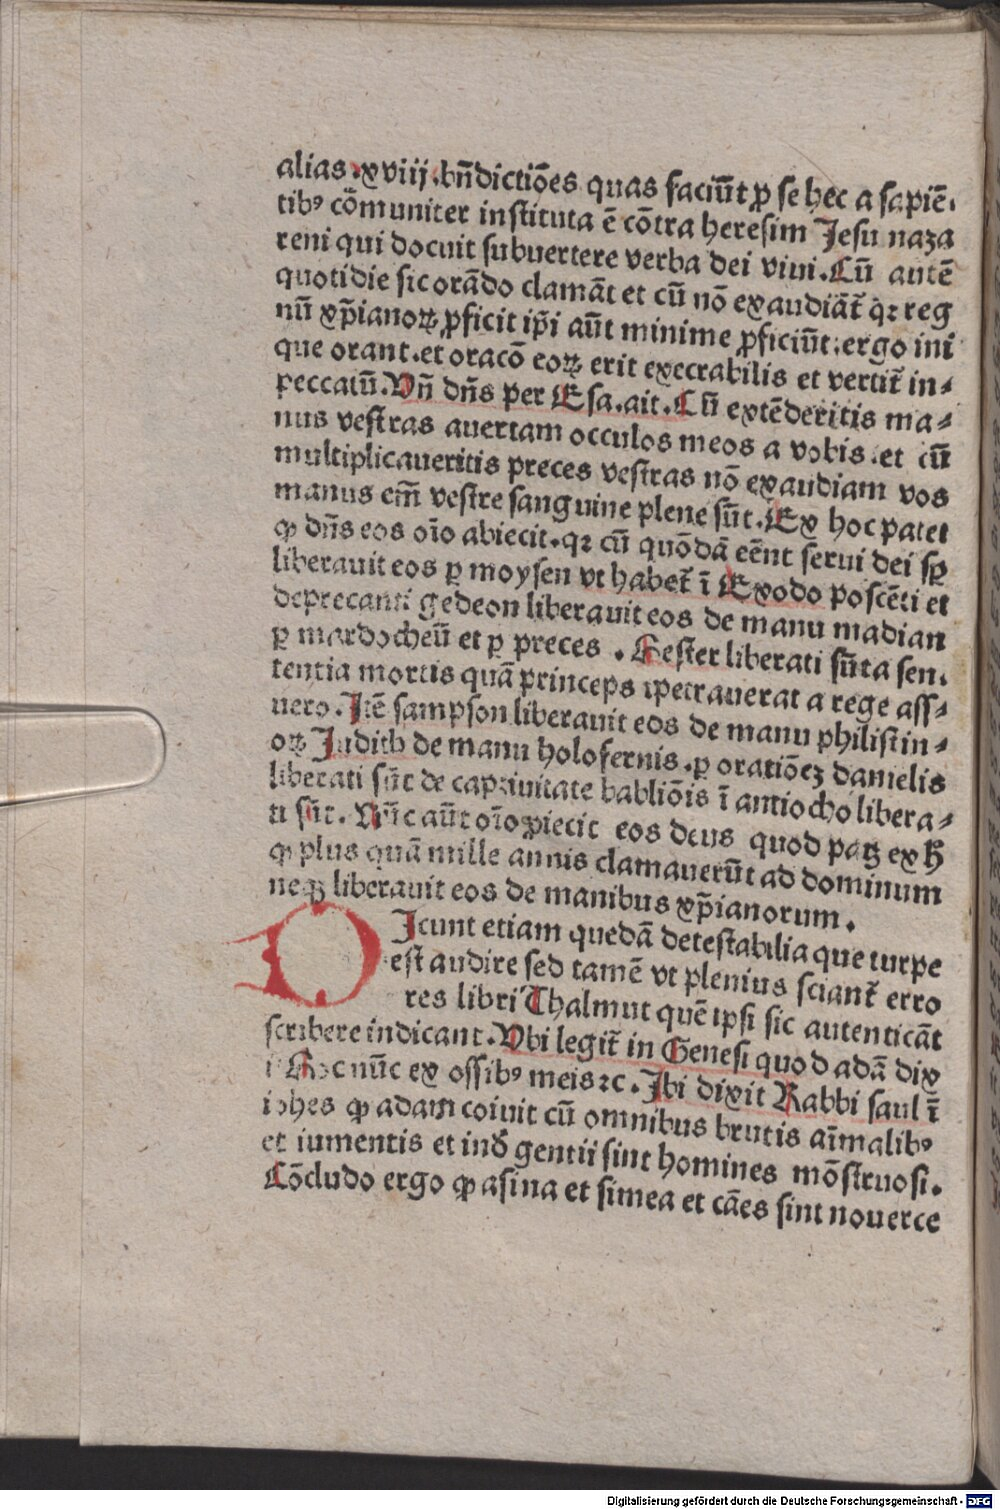 alias .xviij. bn̄dictiões quas faciūt ꝓ se hec a sapiē.
tibꝰ cōmuniter instituta ē cōtra heresim Jesu naza
reni qui docuit subuertere verba dei viui. Cū autē
quotidie sic orādo clamāt et cū nō exaudiāt̄ qꝛ reg
nū xp̄ianoꝝ ꝓficit ip̄i aūt minime ꝓficiūt. ergo ini
que orant. et oracō eoꝝ erit execrabilis et vertit̄ in⸗
peccatū. Vn̄ dn̄s per Esa. ait. Cū extēderitis ma⸗
nus vestras auertam occulos meos a vobis. et cū
multiplicaueritis preces vestras nō exaudiam vos
manus em̄ vestre sanguine plene sūt. Ex hoc patet
ꝙ dn̄s eos oīo abiecit. qꝛ cū quōdā eēnt serui dei sꝑ
liberauit eos ꝑ moysen vt habet̄ ī Exodo poscēti et
deprecanti gedeon liberauit eos de manu madian
ꝑ mardocheū et ꝑ preces . Hester liberati sūt a sen.
tentia mortis quā princeps ipetrauerat a rege ass⸗
uero. Itē sampson liberauit eos de manu philistin⸗
oꝝ Judith de manu holofernis. ꝑ oratiōeꝫ danielis
liberati sūt de captiuitate babliōis ī antiocho libera⸗
ti sūt. Nūc aūt oīo ꝓiecit eos deus quod patꝫ ex ħ
ꝙ plus quā mille annis clamauerūt ad dominum
neqꝫ liberauit eos de manibus xp̄ianorum.
DIcunt etiam quedā detestabilia que turpe
est audire sed tamē vt plenius sciant̄ erro
res libri Thalmut quē ipsi sic autenticāt
scribere indicant. Vbi legit̄ in Genesi quod adā dix
i Hoc nūc ex ossibꝰ meis ꝛc. Ibi dixit Rabbi saul ī
iohes ꝙ adam coiuit cū omnibus brutis aīmalibꝰ
et iumentis et inđ gentii sint homines mōstruosi.
Cōcludo ergo ꝙ asina et simea et cāes sint nouerce
Digitalisierung gefördert durch die Deutsche Forschungsgemeinschaft - DFG